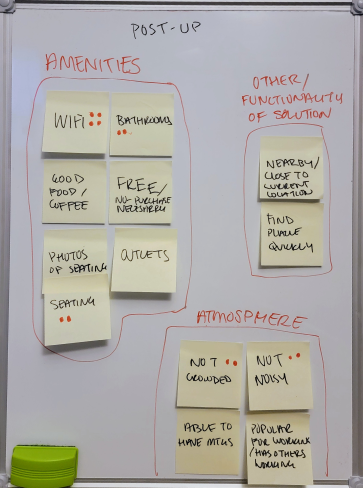 POST-UP
AMENITIES
WIFI
BATHROOMS
GOOD
FOOD/
COFFEE
FREE/
NO PURCHASE
NECESSARY
PHOTOS
OF SEATING
OUTLETS
SEATING
OTHER/
FUNCTIONALITY
OF SOLUTION
NEARBY/
CLOSE TO
CURRENT
LOCATION
FIND
PLACE
QUICKLY
ATMOSPHERE
NOT
CROWDED
NOT
NOISY
ABLE TO
HAVE MTGS
POPULAR
FOR WORKING
/HAS OTHERS
WORKING